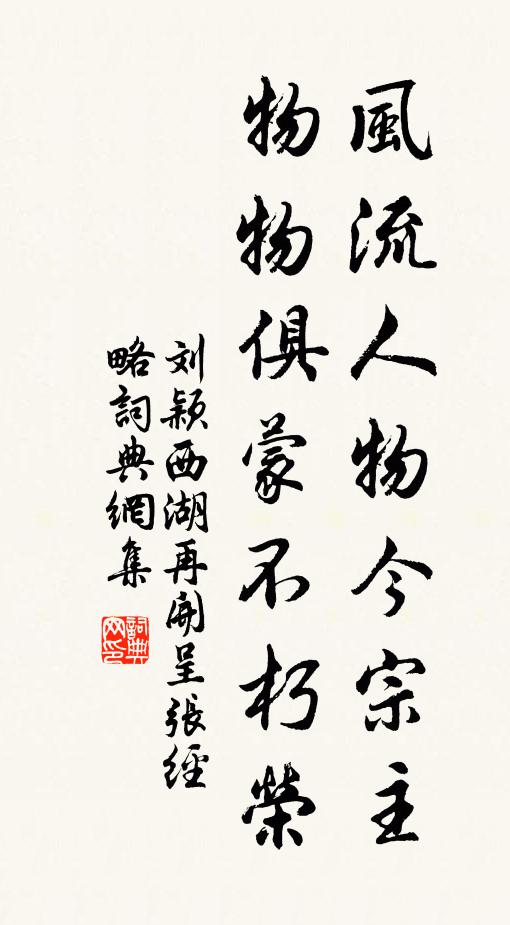 風流人物今宗主
物物俱蒙不朽榮
刘颖西湖再開呈張經
略詞典網集
詞典
网印